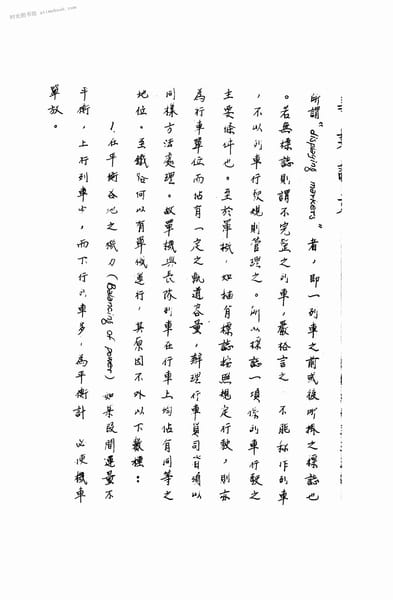 时光图书馆 a1imebook.com
所謂"displaying markers"者，即一列車之前或後所揍之標誌也
。若無標誌則謂不完整之列車，嚴格言之 不能称作列車
，不以列車行駛規則管理之。所以標誌一項係列車行駛之
主要條件也。至於單機，如插有標誌按照規定行駛，則亦
為行車單位而佔有一定之軌道容量，辦理行車員司皆須以
同樣方法處理。故單機與長隊列車在行車上均佔有同等之
地位。至鐵路何以有單機運行，其原因不外以下數種：
1.在平衡各地之機力(Balancing of power)如某段間運量不
平衡，上行列車少，而下行列車多，為平衡計 必使機車
單放。